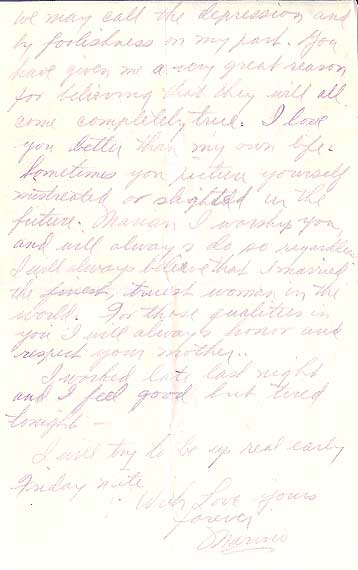 we may call the depression and
by foolishness on my part. You
have given me a very great reason
for believing that they will all
come completely true. I love
you better than my own life.
Sometimes you picture yourself
mistreated or slighted in the
future. Marian I worship you,
and will always do so regardless
I will always believe that I married
the finest, truest woman in the
world. For those qualities in
you I will always honor and
respect your mother..
I worked late last night
and I feel good but tired
tonight –
I will try to be up real early
Friday nite
With Love yours
forever